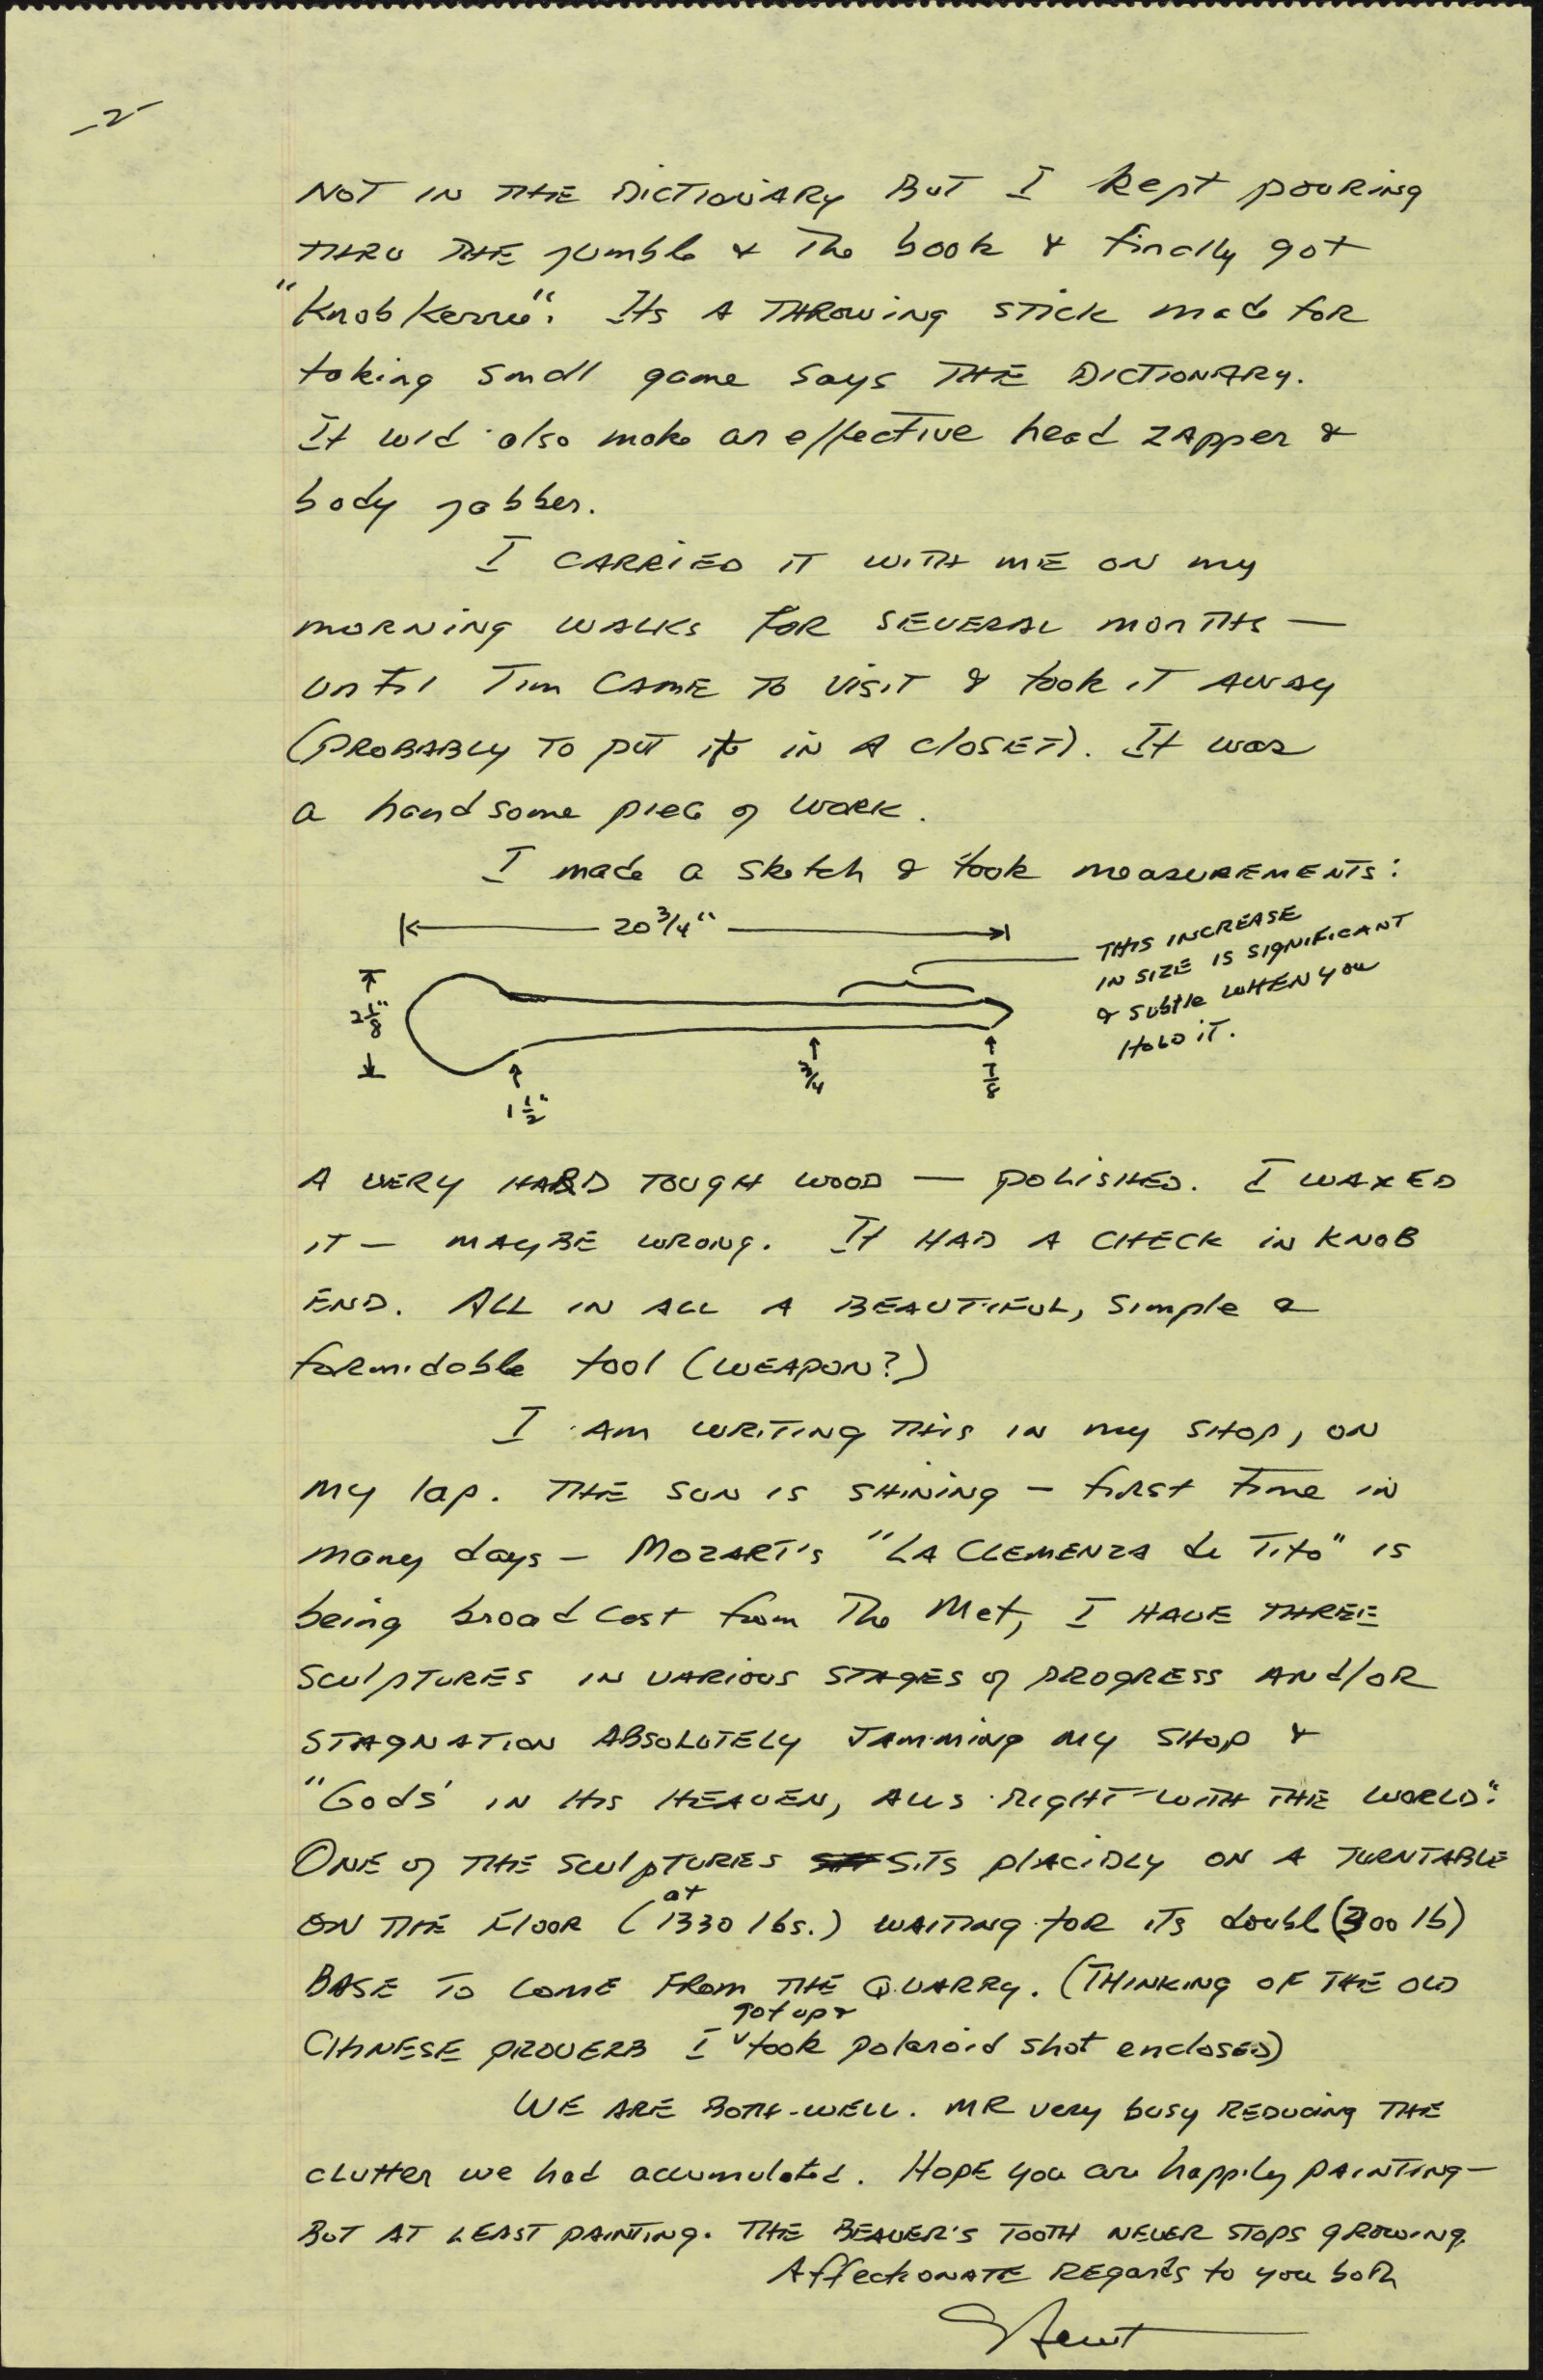 -2-
NOT IN THE DICTIONARY BUT I kept pouring
THRU THE jumble & The book & finally got
"Knobkerrie". Its A THROWING STICK made for
taking small game says THE DICTIONARY.
It wld also make an effective head zapper &
body jabber.
I CARRIED IT WITH ME ON my
MORNING WALKS FOR SEVERAL MONTHS —
until Tim CAME TO VISIT & took IT AWAY
(PROBABLY TO PUT it IN A CLOSET). It was
a handsome piece of WORK.
I made a sketch & took measUREMENTS:
20 3/4"
THIS INCREASE
IN SIZE IS SIGNIFICANT
& subtle WHEN you
HOLD iT.
2 1/8"
1 1/2"
3/4
7/8
A VERY HARD TOUGH WOOD — POLISHED. I WAXED
IT — MAYBE WRONG. It HAD A CHECK IN KNOB
END. ALL IN ALL A BEAUTIFUL, simple &
formidable tool (WEAPON?)
I AM WRITING THIS IN my SHOP, ON
MY lap. THE SUN IS SHINING — first time in
many days — MOZART'S "LA CLEMENZA de Tito" IS
being broadcast from The Met, I HAVE THREE
SCULPTURES IN VARIOUS STAGES of PROGRESS AND/OR
STAGNATION ABSOLUTELY JAMMING MY SHOP &
"Gods' IN HIS HEAVEN, ALLS RIGHT WITH THE WORLD".
ONE of THE SCULPTURES SITS PLACIDLY ON A TURNTABLE
ON THE FLOOR (at 1330 lbs.) WAITING FOR ITS doubl (300 lb)
BASE TO COME FROM THE QUARRY. (THINKING OF THE OLD
CHINESE PROVERB I got up & took polaroid shot enclosed)
WE ARE BOTH WELL. MR very busy REDUCING THE
clutter we had accumulated. HOPE you are happily PAINTING—
BUT AT LEAST PAINTING. THE BEAVER'S TOOTH NEVER STOPS GROWING.
Affectionate REgards to you both